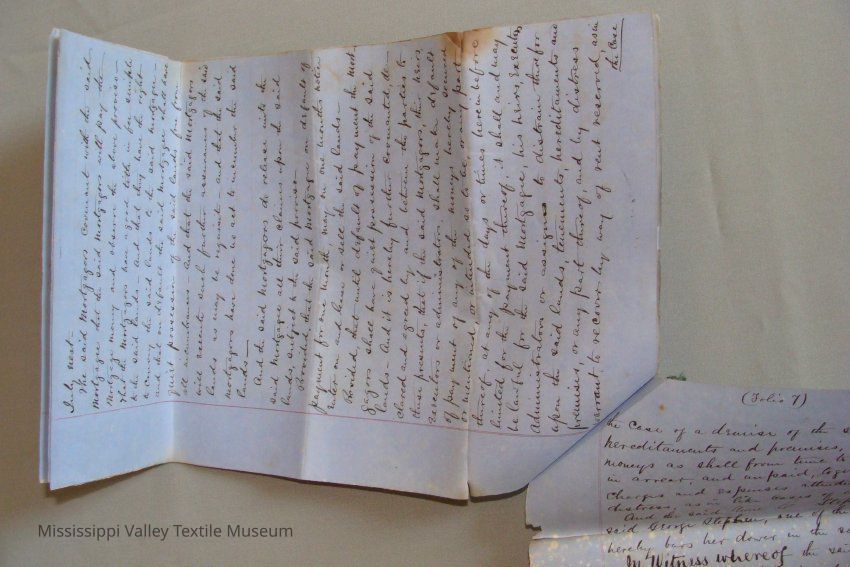 The said Mortgagors covenant with the said
Mortgagee that the said Mortgagors will pay the
Mortgage money and observe the above proviso—
That the Mortgagors have a good title in fee simple
to the said lands— And that they have the right
to convey the said lands to the said Mortgagee—
and that on default the said Mortgagee shall have
quiet possession of the said lands, free from
all incumbrances— And that the said Mortgagors
will execute such further assurances of the said
lands as may be requisite— and that the said
Mortgagors have done no act to incumber the said
lands—
And the said Mortgagors do release unto the
said Mortgagee all their claims upon the said
lands, subject to the said proviso—
Provided that the said Mortgagee on default of
payment for one month, may on one months notice
Enter on and lease or sell the said lands—
Provided, that until default of payment the Mort-
gagors shall have quiet possession of the said
lands— And it is hereby further covenanted, de-
clared and agreed by and between the parties to
these presents, that if the said Mortgagors, their heirs,
executors or administrators, shall make default
of payment of any of the moneys hereby secured
or mentioned, or intended so to be, or any part
thereof, at any of the days or times hereinbefore
limited for the payment thereof, it shall and may
be lawful for the said Mortgagee, his heirs, Executors,
Administrators or assigns to distrain therefor
upon the said lands, tenements, hereditaments and
premises, or any part thereof, and by distress
warrant, to recover by way of rent reserved, as in
the Case
(Folio 7)
the Case of a demise of the s
hereditaments and premises,
moneys as shall from time to
in arrear, and unpaid, toge
charges and expenses attend
distress, as in like cases of
And the said
said George Stephen, one of the
hereby bars her dower in the sa
In Witness whereof the sai
Mississippi Valley Textile Museum